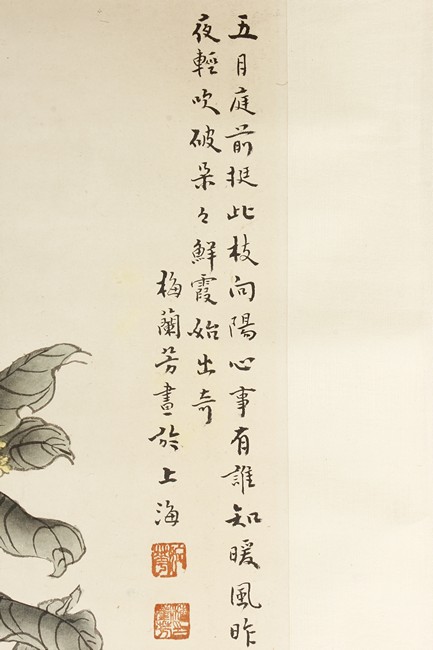 五月庭前挺此枝向陽心事有誰知暖風昨
夜輕吹破朵々鮮霞始出奇
梅蘭芳畫於上海